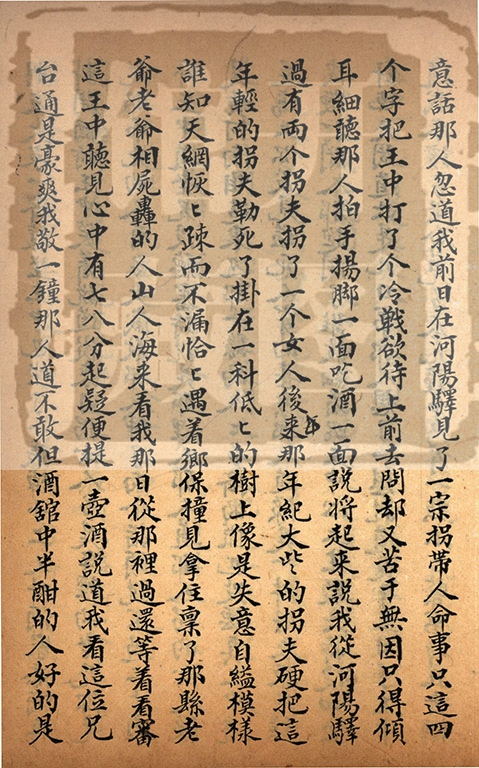 意話那人忽道我前日在河陽驛見了一宗拐帶人命事只這四
个字把王中打了个冷戰欲待上前去問却又苦于無因只得傾
耳細聽那人拍手揚脚一面吃酒一面說將起来說我從河陽驛
過有両个拐夫拐了一个女人後来那年紀大些的拐夫硬把這
年輕的拐夫勒死了掛在一科低〻的樹上像是失意自縊模樣
誰知天網恢〻疎而不漏恰〻遇着鄉保撞見拿住禀了那縣老
爺老爺相屍轟的人山人海来看我那日從那裡過還等着看審
這王中聽見心中有七八分起疑便提一壺酒說道我看這位兄
台通是豪爽我敬一鐘那人道不敢但酒舘中半酣的人好的是